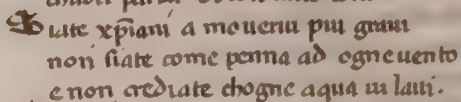 Siate xp̄iani a moverui piu graui
non siate come penna ad ogne uento
e non crediate chogne aqua ui laui.